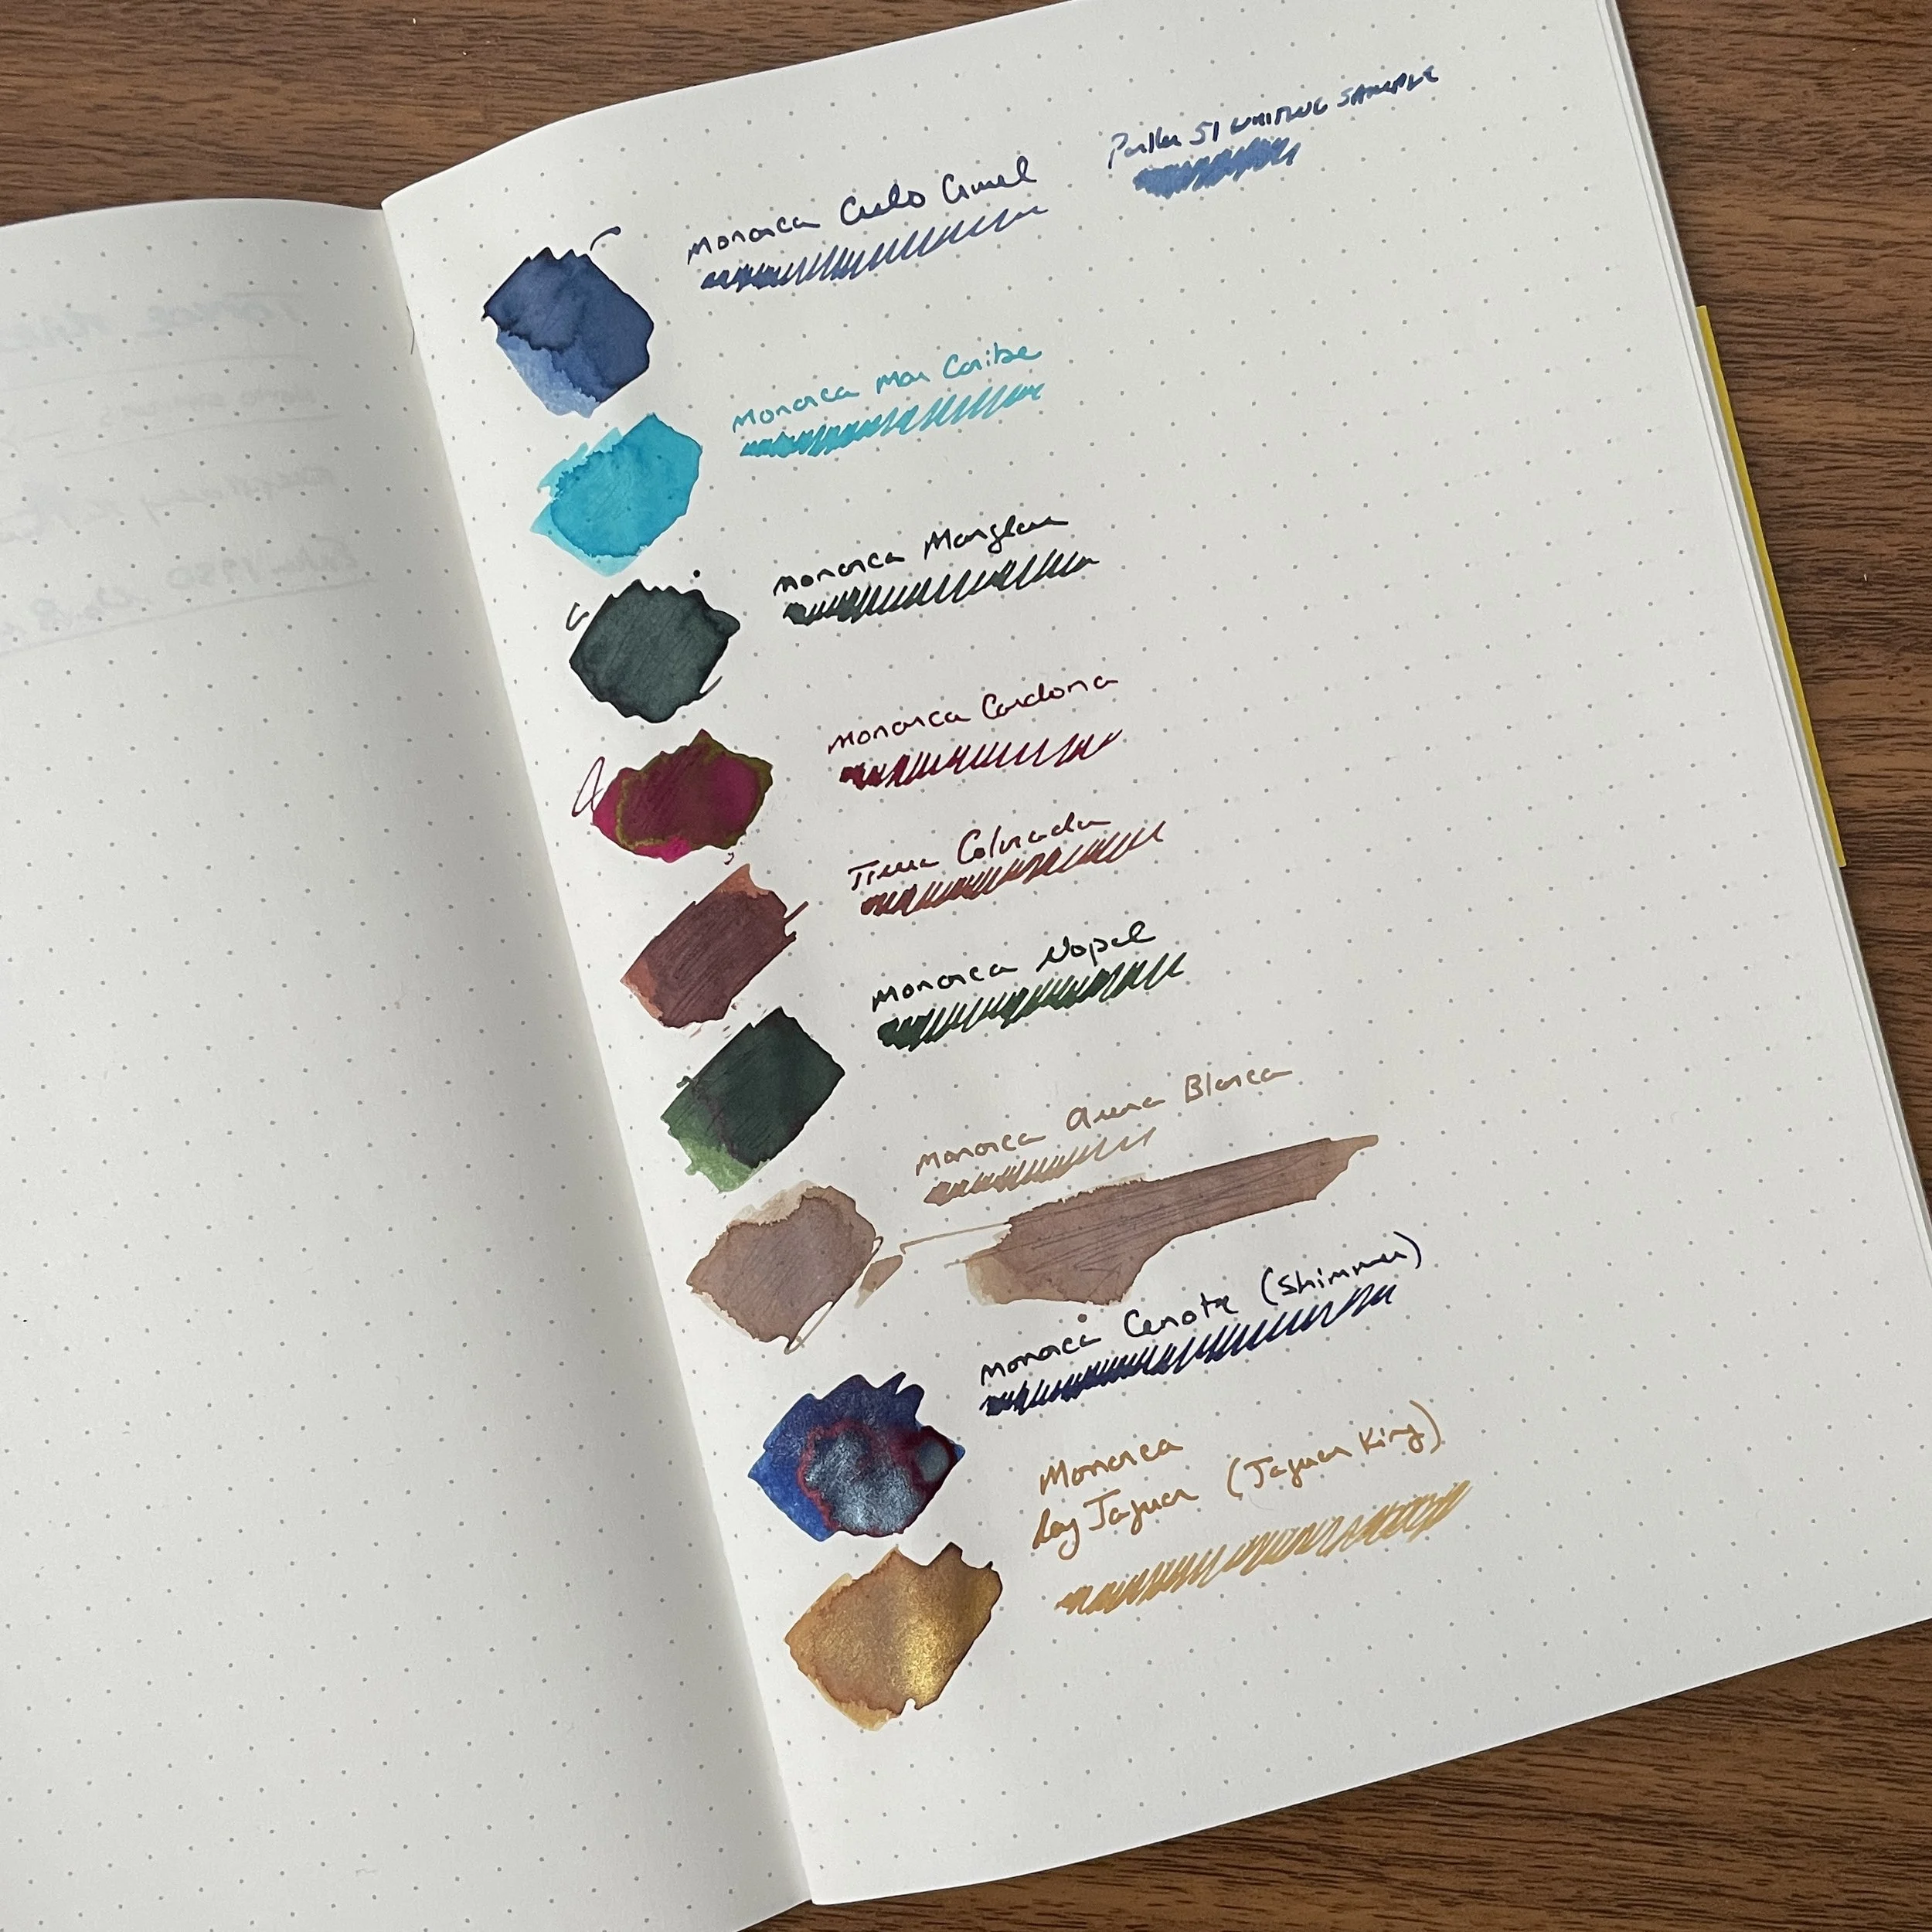 Monarca Cielo Cruel
Parker 51 WRITING SAMPLE
Monarca Mar Caribe
Monarca Manglar
Monarca Cardona
Tierra Colorada
Monarca Nopal
Monarca Arena Blanca
Monarca Cenote (Shimmer)
Monarca
Rey Jaguar (Jaguar King)